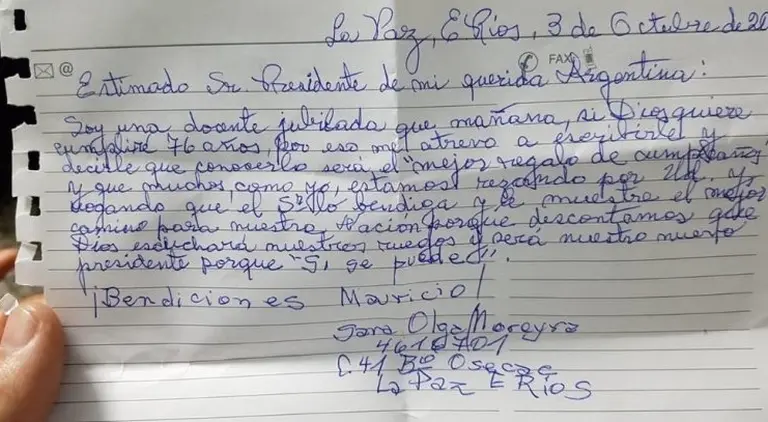 La Paz, E Ríos, 3 de Octubre de 20
@ FAX
Estimado Sr. Presidente de mi querida Argentina:
Soy una docente jubilada que mañana, si Dios quiere
cumpliré 76 años, por eso me atrevo a escribirle y
decirle que conocerlo será el "mejor regalo de cumpleaños"
y que muchos, como yo, estamos rezando por Ud. y,
rogando que el Sr lo bendiga y le muestre el mejor
camino para nuestra Nación porque descontamos que
Dios escuchará nuestros ruegos y será nuestro nuevo
presidente porque "Sí, se puede".
¡Bendiciones Mauricio!
Sara Olga Moreyra
C.41 Bº
La Paz E RíOS